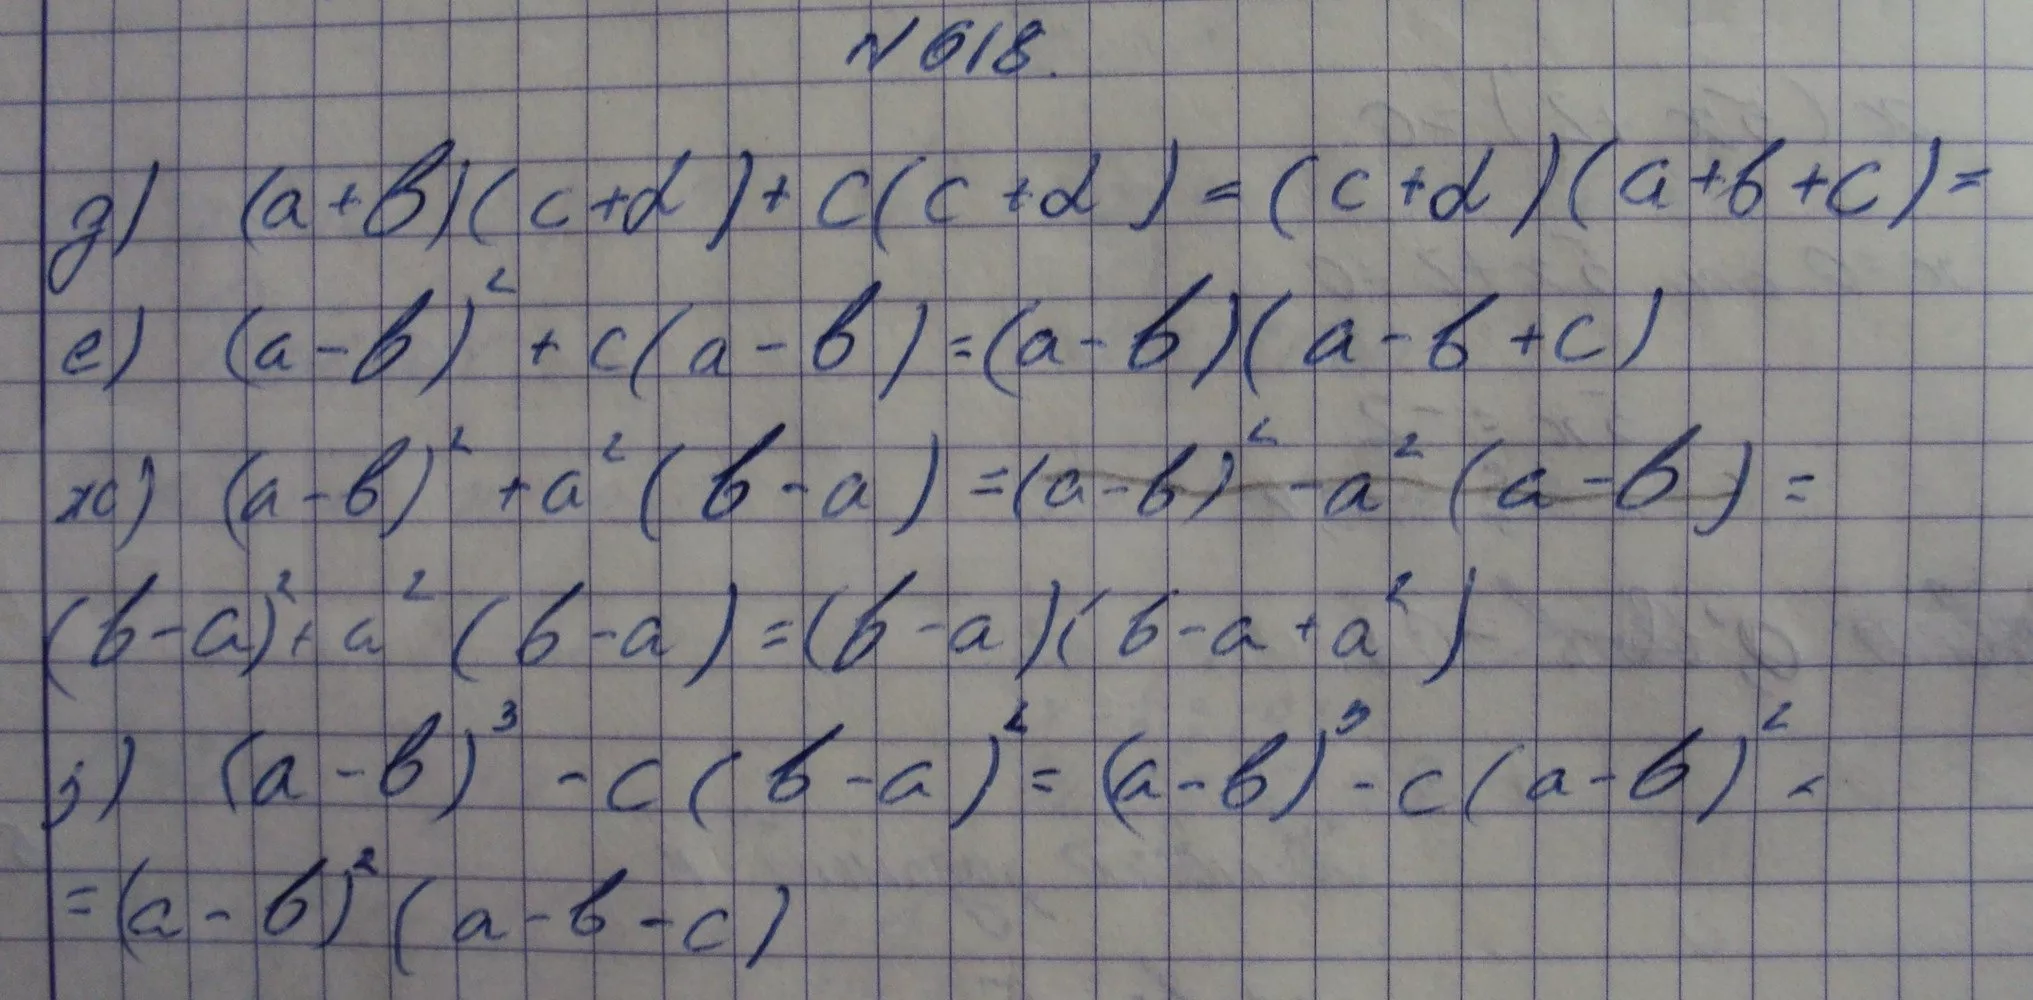 N 618.
д) (a+b)(c+d)+c(c+d)=(c+d)(a+b+c)=
е) (a-b)²+c(a-b)=(a-b)(a-b+c)
ж) (a-b)²+a²(b-a)=(a-b)²-a²(a-b)=
(b-a)²+a²(b-a)=(b-a)(b-a+a²)
з) (a-b)³-c(b-a)²=(a-b)³-c(a-b)²=
=(a-b)²(a-b-c)